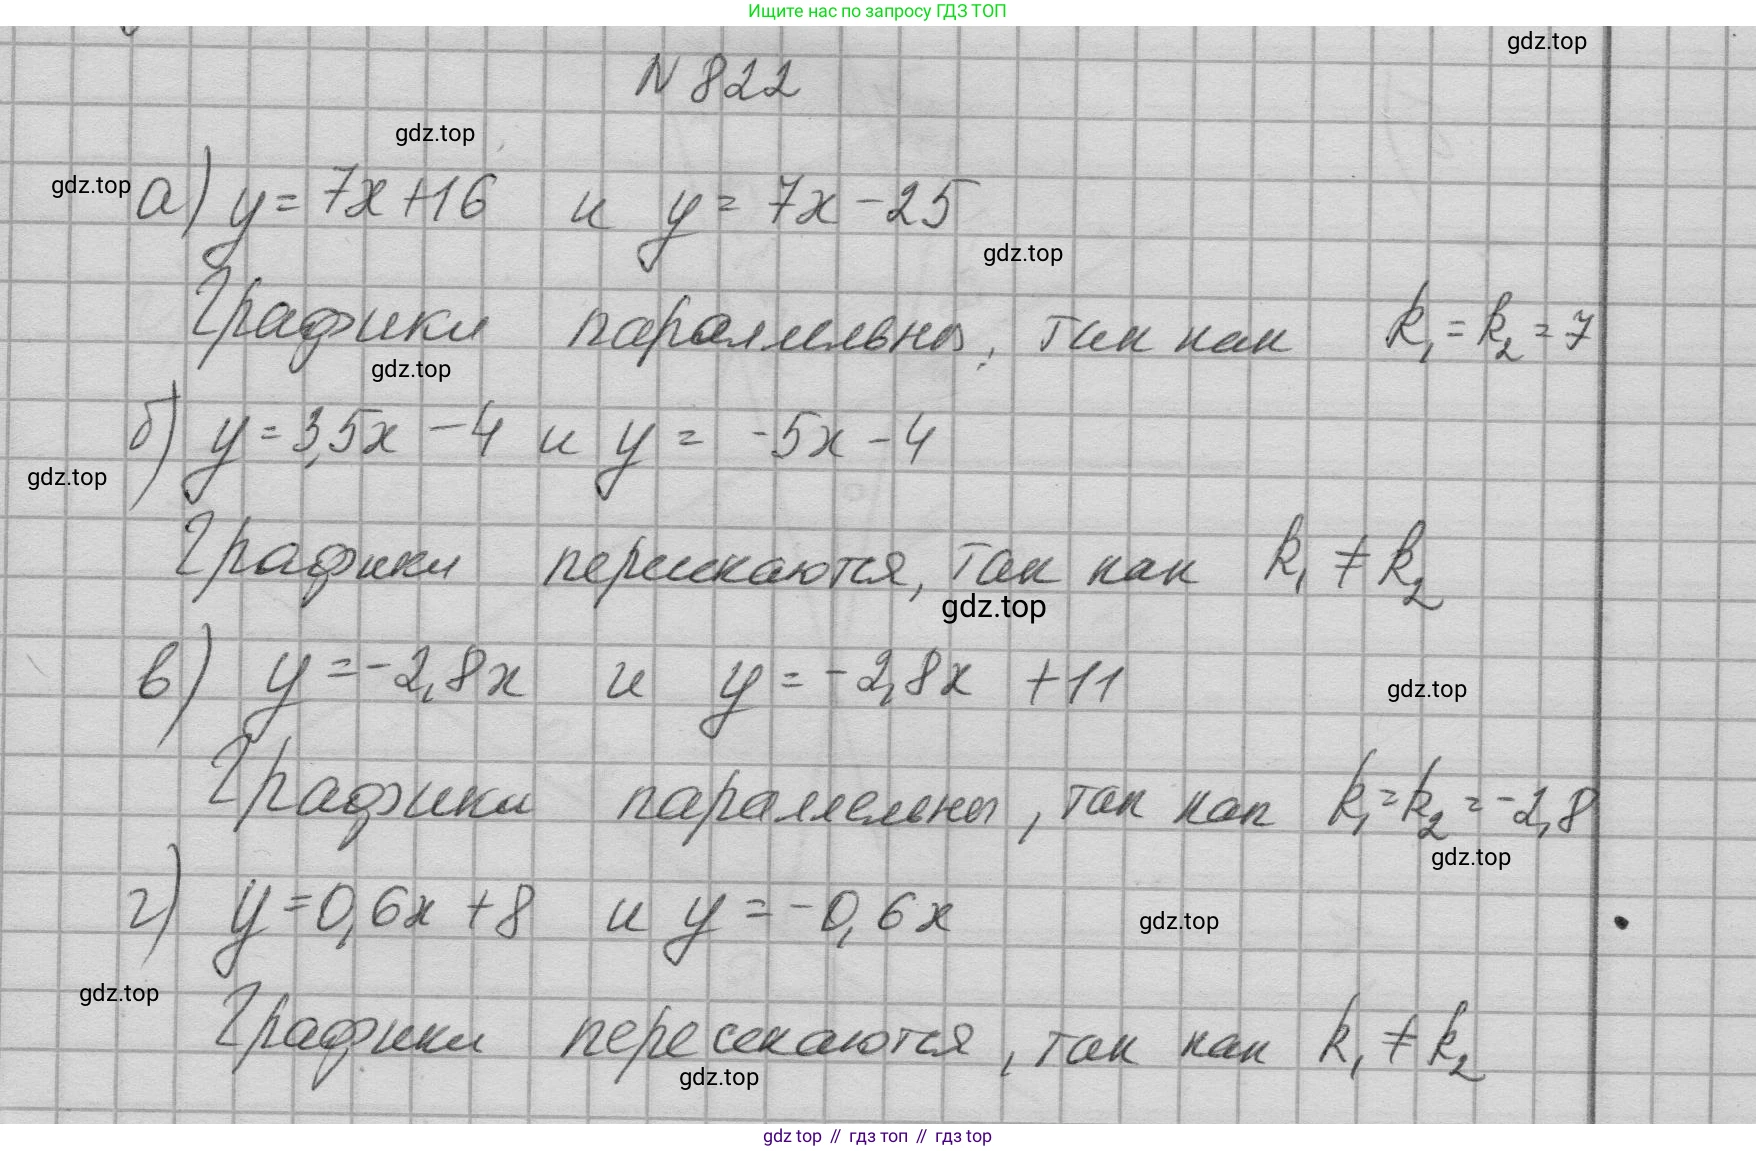 Ищите нас по запросу ГДЗ ТОП
gdz.top
N 822
gdz.top
gdz.top
а) y = 7x + 16 и y = 7x - 25
gdz.top
Графики параллельны, так как k₁ = k₂ = 7
gdz.top
б) y = 3,5x - 4 и y = -5x - 4
gdz.top
Графики пересекаются, так как k₁ ≠ k₂
gdz.top
в) y = -2,8x и y = -2,8x + 11
gdz.top
Графики параллельны, так как k₁ = k₂ = -2,8
gdz.top
г) y = 0,6x + 8 и y = -0,6x
gdz.top
gdz.top
Графики пересекаются, так как k₁ ≠ k₂
gdz.top
gdz top // гдз топ // гдз top